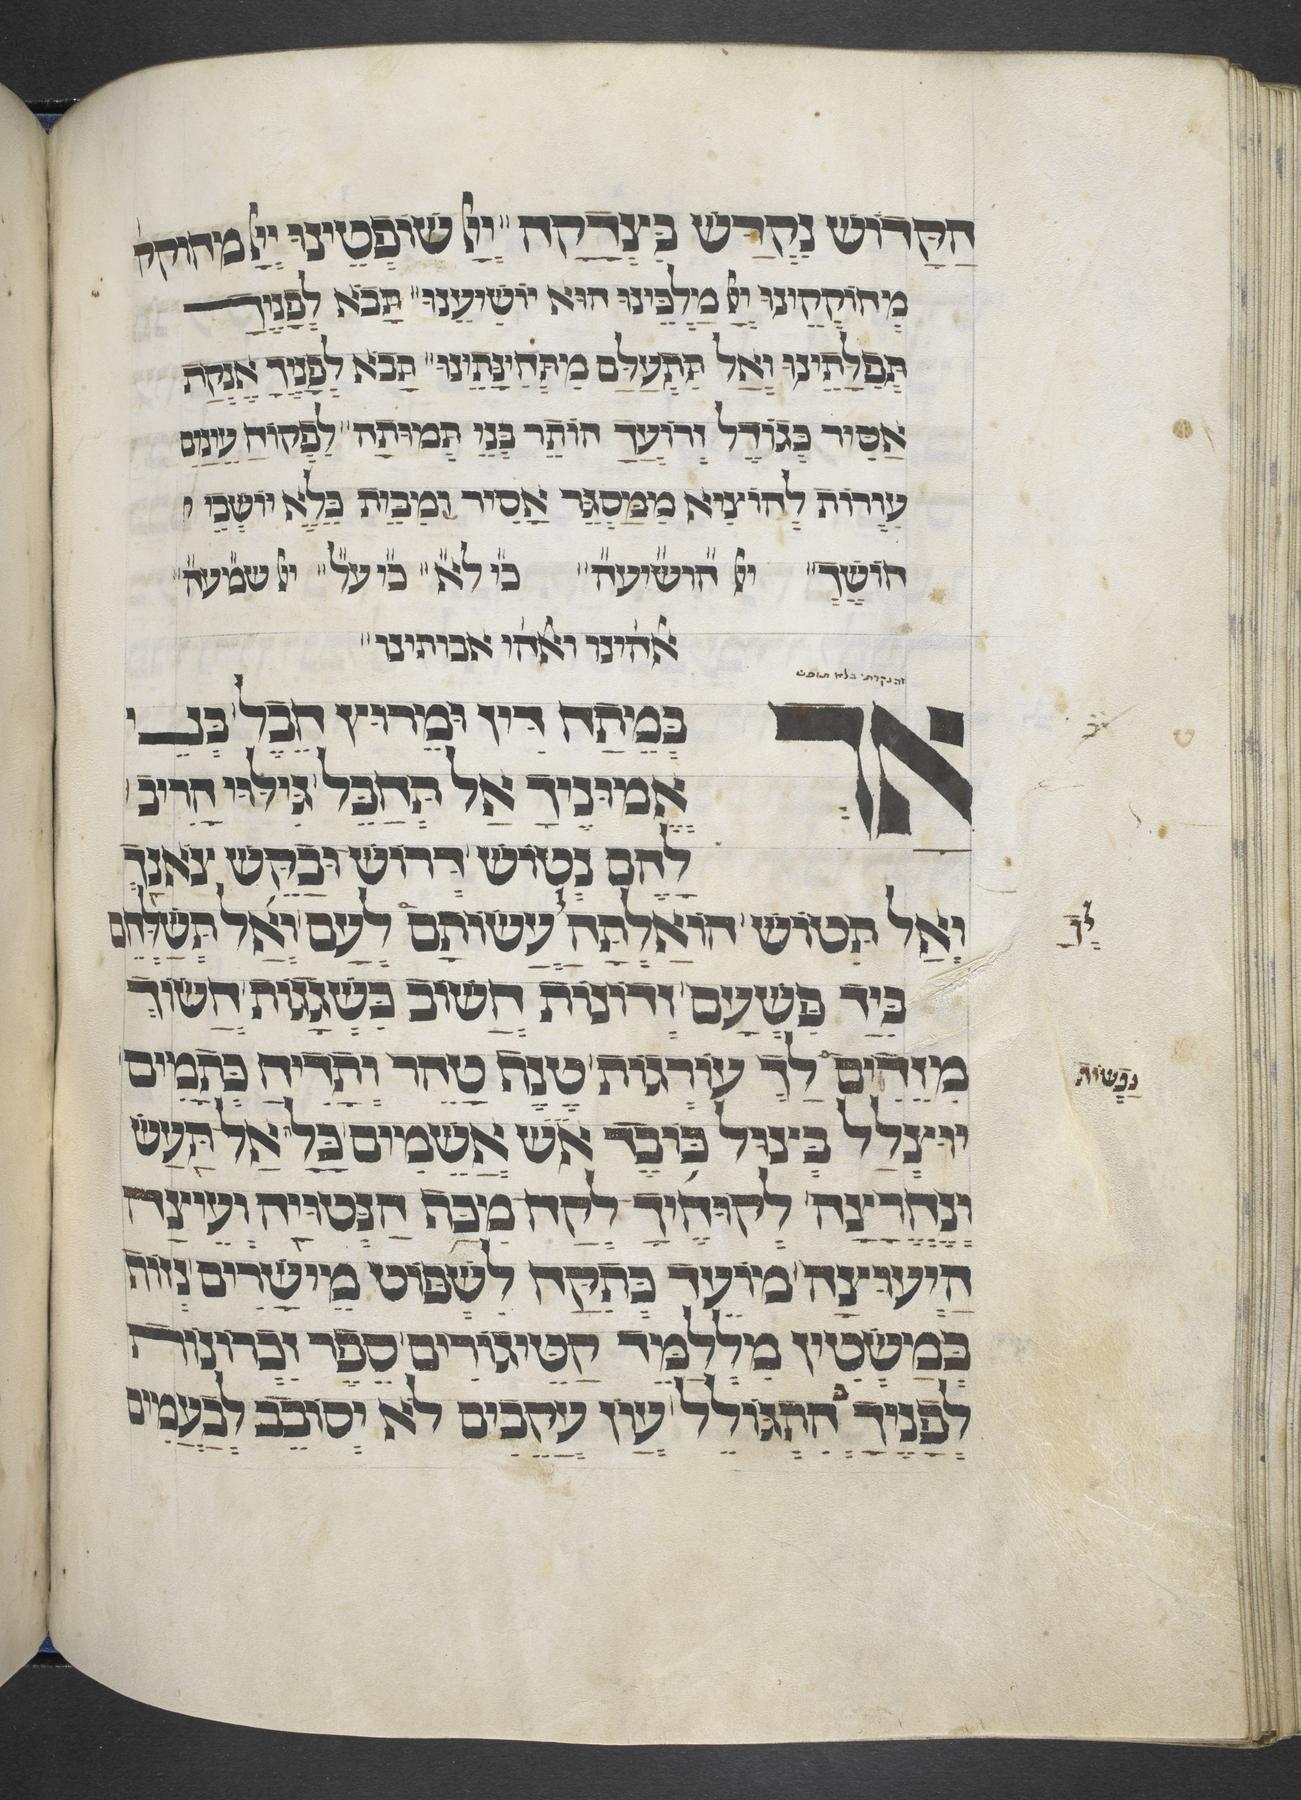 הַקָדוֹשׁ נִקְדַשׁ בִּצְדָקָה׃ יְיָ שׁוֹפְטֵינוּ יְיָ מחוקק
מְחוֹקְקֵינוּ יְיָ מַלְכֵּינוּ הוּא יוֹשִׁיעֵנוּ׃ תָּבֹא לְפָנֶיךָ
תְּפִלָּתֵינוּ וְאַל תִּתְעַלַּם מִתְּחִינָּתֵינוּ׃ תָּבֹא לְפָנֶיךָ אֶנְקַת
אַסִּיר כְּגוֹדֶל זְרוֹעֲךָ הוֹתֵר בְּנֵי תְמוּתָה׃ לִפְקוֹחַ עֵינַיִם
עִוְרוֹת לְהוֹצִיא מִמַּסְגֵּר אַסִּיר וּמִבֵּית כֶּלֶא יוֹשְׁבֵי
חוֹשֶׁךְ׃ יי הושיעה׃ כי לא׃ כי על׃ יי שמעה׃
אלהינו ואלהי אבותינו׃
אַךְ בְּמֵתַח דִּין וּמֵרוּץ הֶבֶל בְּנֵי
אֱמוּנֶיךָ אַל תְּחַבֵּל גִּילּוּי חֲרִיב
לָהֶם נְטוֹשׁ דְּרוֹשׁ וּבַקֵּשׁ צֹאנְךָ
וְאַל תִּטּוֹשׁ הוֹאַלְתָּה עֲשׂוֹתָם לְעַם וְאַל תְּשַׁלְּחֵם
לְךָ
בְּיַד פִּשְׁעָם זְדוֹנוֹת חֲשׁוֹב כִּשְׁגָגוֹת חֲשׂוֹךְ
מִזֵּדִים לְךָ עוֹרְגוֹת טָנָה טַהֵר וְתָדִיחַ כְּתָמִים
נְפָשׁוֹת
יוּצְלַל בְּצוּל כּוֹבֶד אֵשׁ אֲשֵׁמִים כָּל אַל תַּעַשׂ
וְנֶחֱרָצָה לְקוּחֶיךָ לְקַח מִכַּת הַנְּטוּיָה וְעֵוצָה
הַיְעוּצָה מוֹעֵד כְּתִקַּח לִשְׁפּוֹט מֵישָׁרִים נְזוֹת
בְּמַשְׂטִין מִלְּלַמֵּד קַטֵּיגוֹרִים סֵפֶר זִכְרוֹנוֹת
לְפָנֶיךָ בְּהִתְגּוֹלֵל עֲוֹן עֲקֵבִים לֹא יְסוֹבֵב לִבְעָמִים